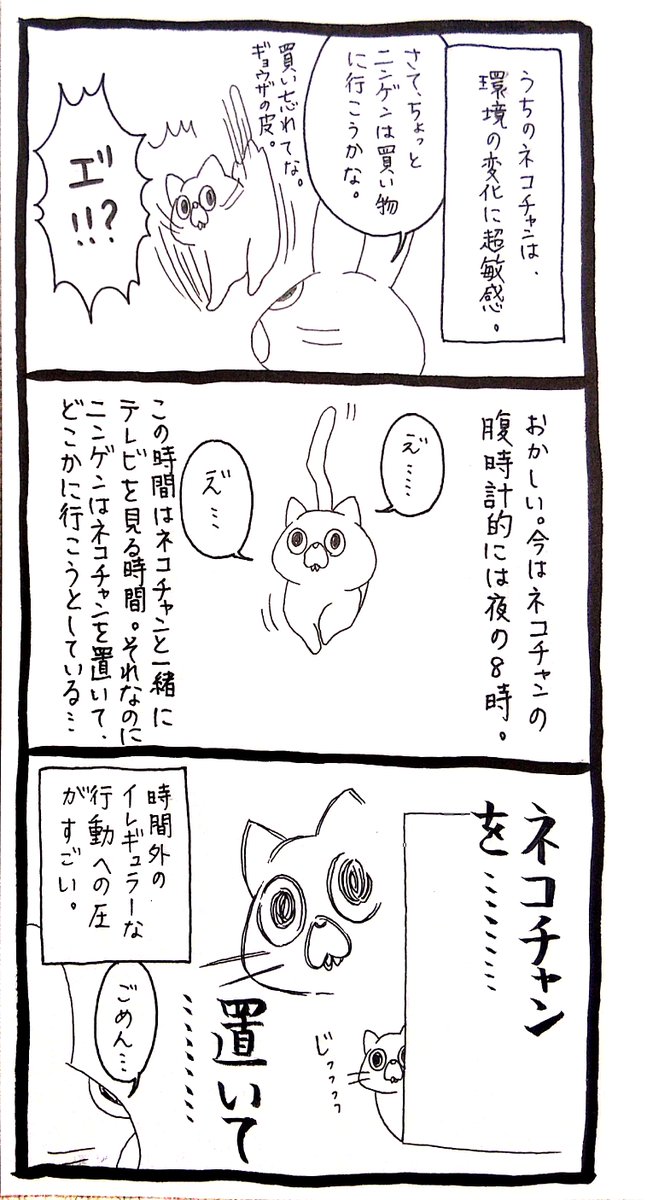 うちのネコチャンは、
環境の変化に超敏感。
さて、ちょっと
ニンゲンは買い物
に行こうかな。
買い忘れてな。
ギョウザの皮。
エ゛
!!?
おかしい。今はネコチャンの
腹時計的には夜の8時。
え゛……
え゛…
この時間はネコチャンと一緒に
テレビを見る時間。それなのに
ニンゲンはネコチャンを置いて、
どこかに行こうとしている…
ネコチャン
を…………
じっっっっ
置いて
…………
時間外の
イレギュラーな
行動への圧
がすごい。
ごめん…